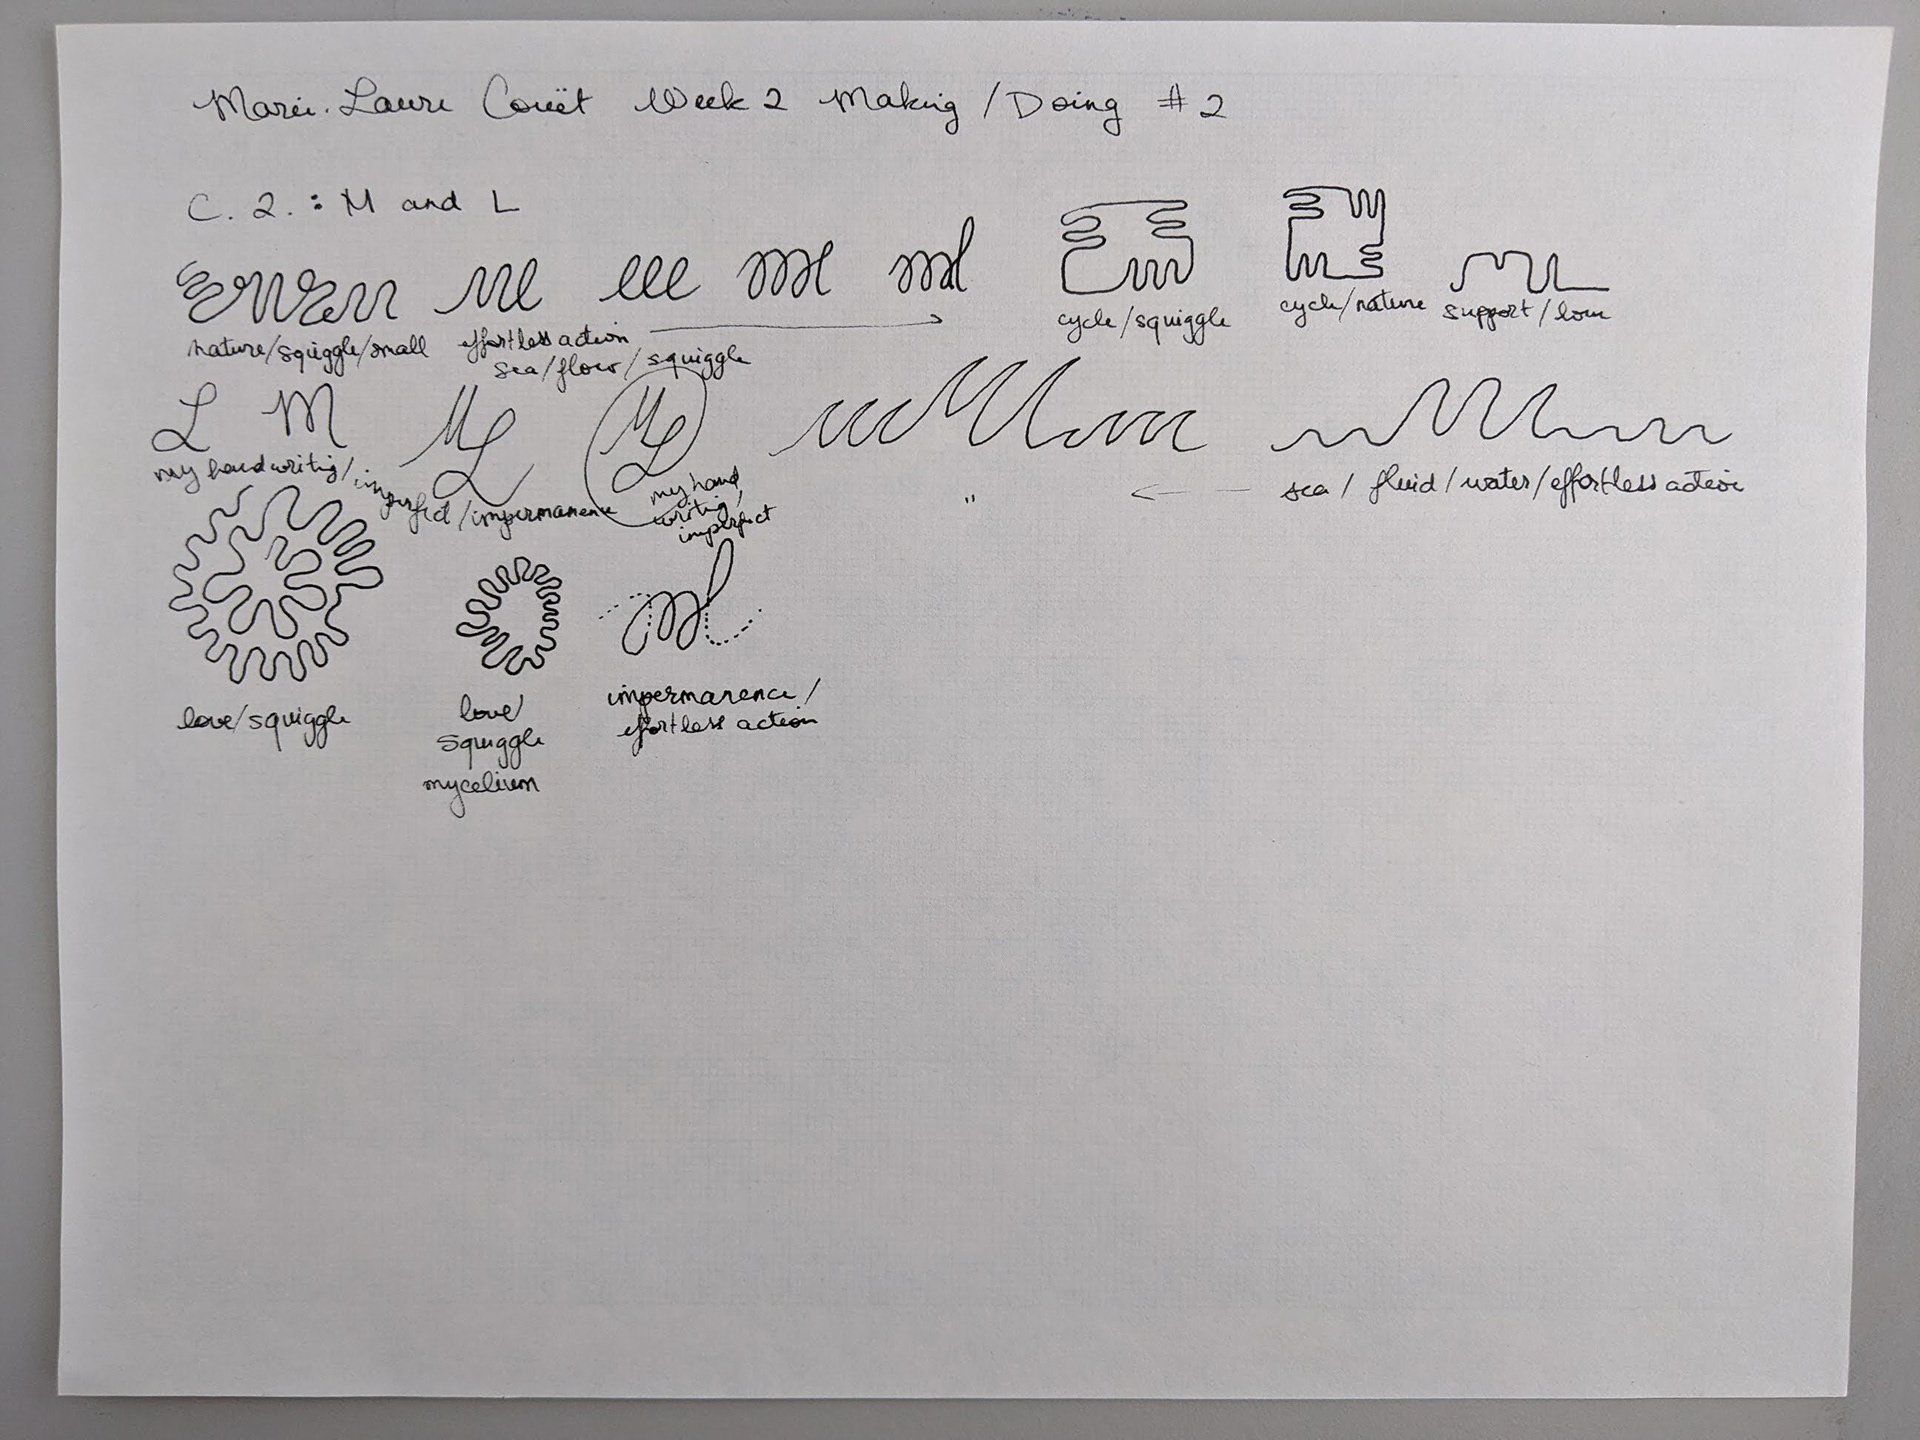 Marie-Laure Couët Week 2 Making/Doing #2
C. 2. : M and L
nature/squiggle/small
effortless action
sea/flow/squiggle
cycle/squiggle
cycle/nature
support/love
L M
ML
ML
my handwriting/imperfect/impermanence
my hand
writing/
imperfect
"
sea/fluid/water/effortless action
love/squiggle
love/
squiggle
mycelium
impermanence/
effortless action